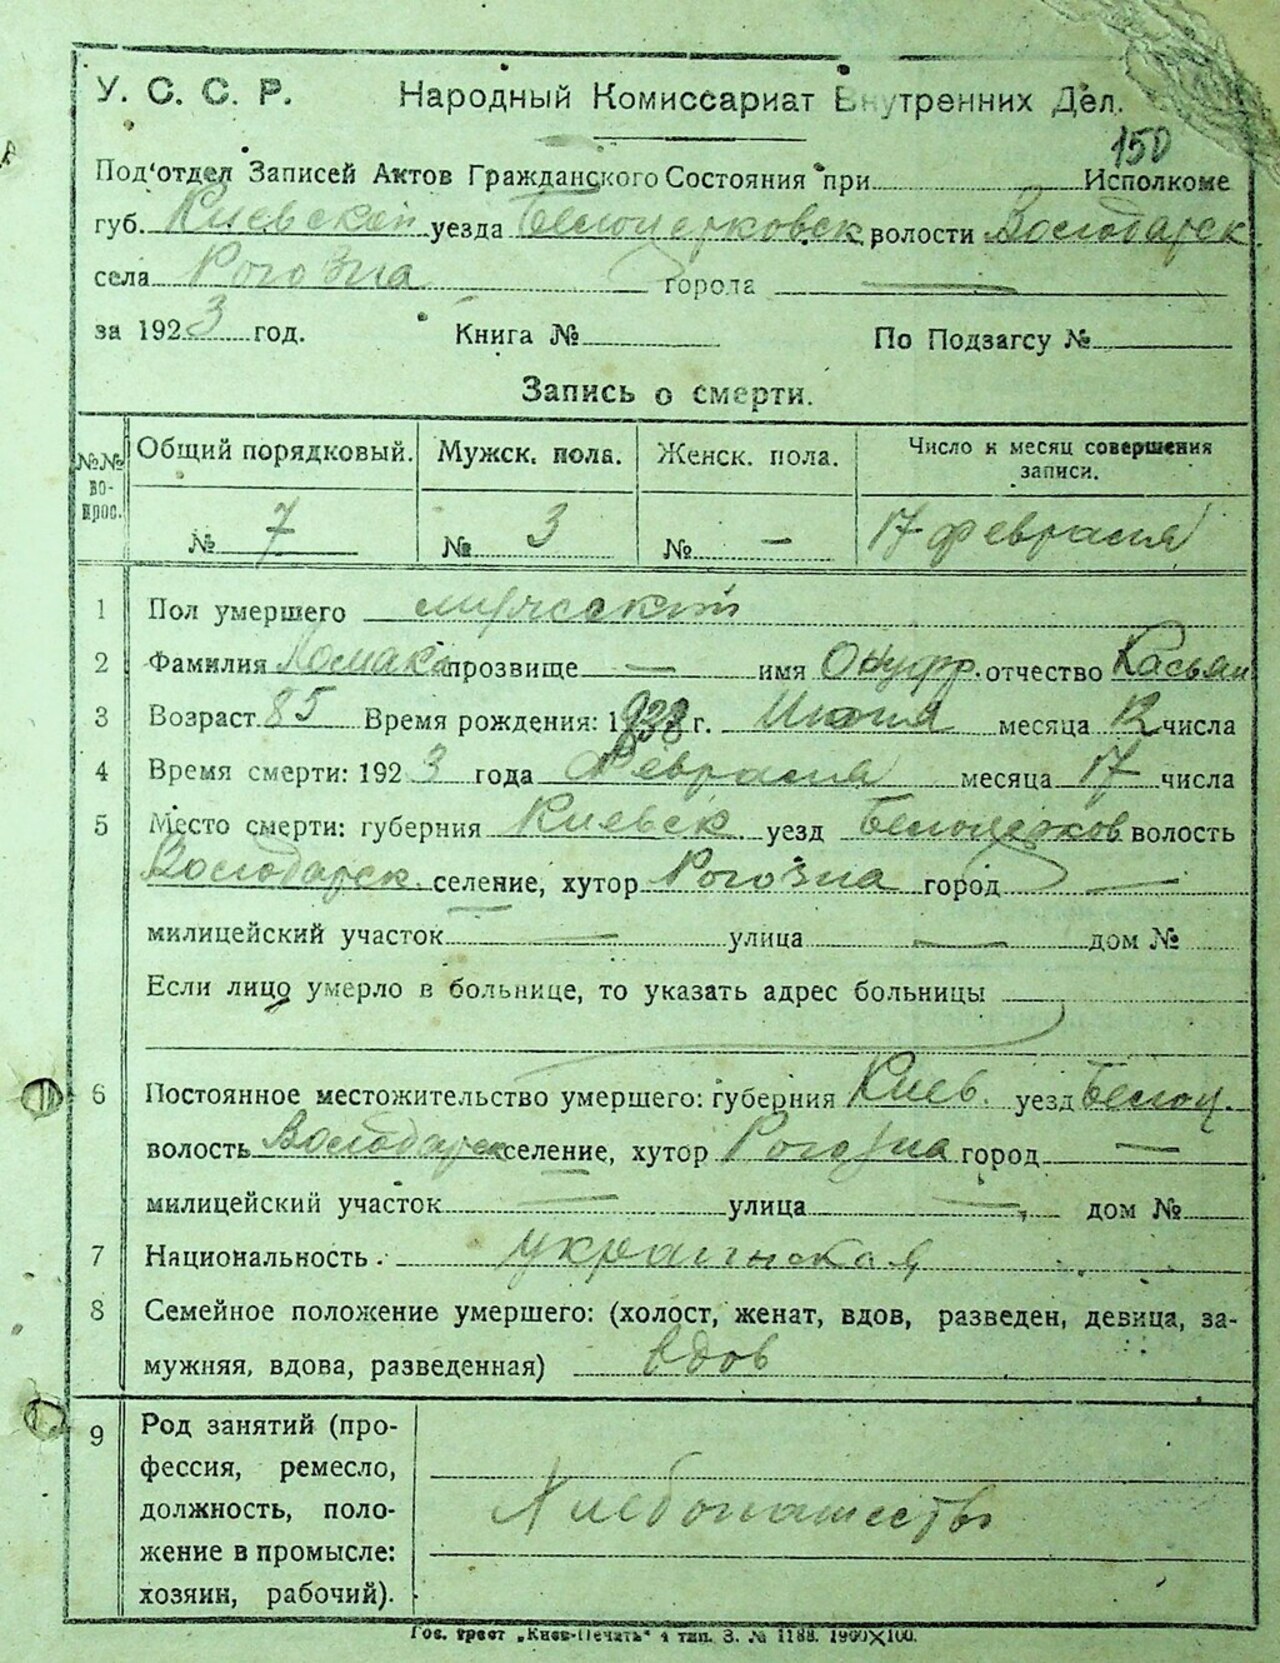 У. С. С. Р. Народный Комиссариат Внутренних Дел.
150
Под'отдел Записей Актов Гражданского Состояния при Исполкоме
губ. Киевской уезда Белоцерковск. волости Володарск.
села Рогозна города —
за 1923 год. Книга № По Подзагсу №
Запись о смерти.
№№ во-прос. Общий порядковый. Мужск. пола. Женск. пола. Число и месяц совершения записи.
№ 7 № 3 № — 17 февраля
1 Пол умершего мужской
2 Фамилия Ломака прозвище — имя Онуфр. отчество Касьян
3 Возраст 85 Время рождения: 1838 г. Июня месяца 12 числа
4 Время смерти: 1923 года Февраля месяца 17 числа
5 Место смерти: губерния Киевск. уезд Белоцерков волость
Володарск. селение, хутор Рогозна город —
милицейский участок — улица — дом №
Если лицо умерло в больнице, то указать адрес больницы
6 Постоянное местожительство умершего: губерния Киев. уезд Белоц.
волость Володарск селение, хутор Рогозна город —
милицейский участок — улица — дом №
7 Национальность украинская
8 Семейное положение умершего: (холост, женат, вдов, разведен, девица, за-
мужняя, вдова, разведенная) вдов
9 Род занятий (про-
фессия, ремесло,
должность, поло-
жение в промысле:
хозяин, рабочий).
Хлебопашество
Гос. трест „Киев-Печать" 4 тип. З. № 1188. 1900X100.